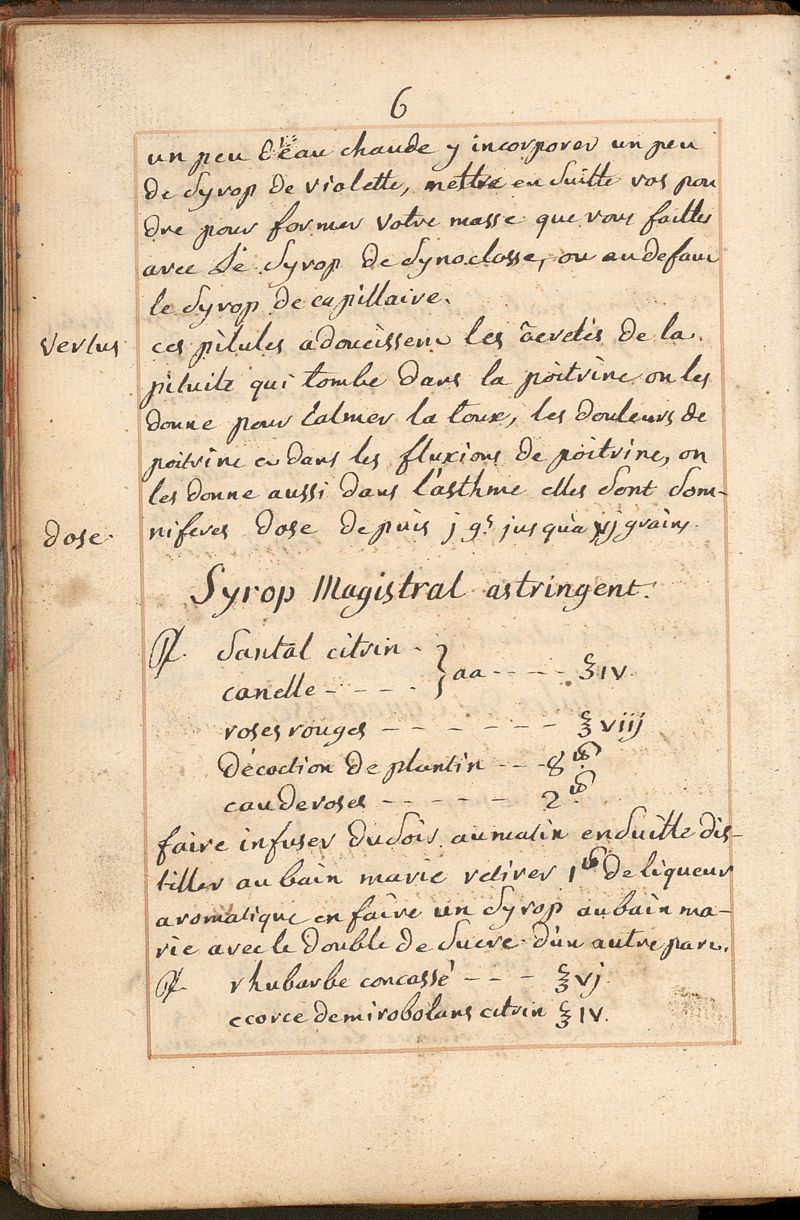 6
un peu d'eau chaude y incorporer un peu
de Syrop de violette, mettre en suitte vos pou
dre pour former votre masse que vous faittes
avec le Syrop de Synoclosse, ou au defaut
le Syrop de capillaire.
Vertus
ces pilules adoucissent les âcretés de la
pituite qui tombe dans la poitrine on les
donne pour Calmer la toux, les douleurs de
poitrine et dans les fluxions de poitrine, on
les donne aussi dans l'asthme elles sont som-
dose.
niferes dose depuis j gs. jusqu'a vj grains.
Syrop Magistral astringent.
℞. Santal citrin - } aa - - - - ℥ IV.
canelle - - - -
roses rouges - - - - - - - ℥ viij
décoction de plantin - - - 8 ℔.
eau de roses - - - - - 2 ℔.
faire infuser du soir au matin en suitte dis-
tiller au bain marie retirer 1 ℔ de liqueur
aromatique en faire un Syrop au bain ma-
rie avec le double de sucre d'un autre part.
℞. rhubarbe concassé - - - ℥ vj.
ecorce de mirobolans citrin ℥ IV.